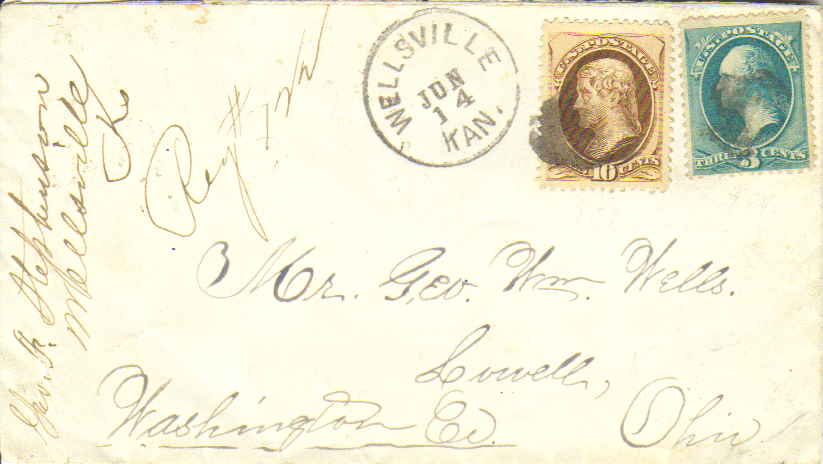 Geo. F. Stephenson
Wellsville
Ks
Reg #
WELLSVILLE
JUN
14
KAN.
U.S. POSTAGE
10 CENTS
U.S. POSTAGE
THREE 3 CENTS
Mr. Geo. Wm. Wells.
Lowell,
Washington Co. Ohio